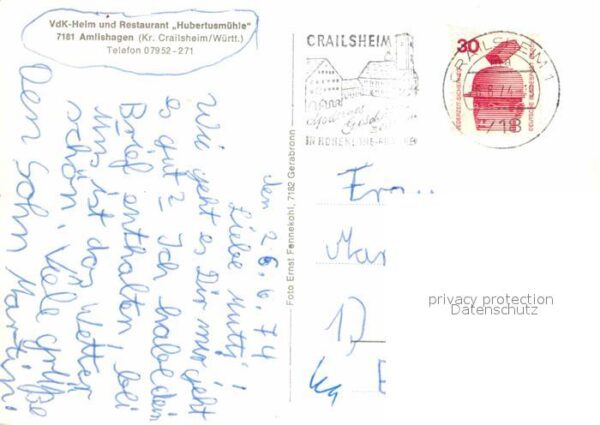 VdK-Heim und Restaurant „Hubertusmühle"
7181 Amlishagen (Kr. Crailsheim/Württ.)
Telefon 07952-271
den 26.6.74
Liebe Mutti!
Wie geht es Dir mir geht
es gut? Ich habe dein
Brief enthalten, bei
uns ist das Wetter
schön. Viele grüße
Dein Sohn Martin.
Foto Ernst Fennekohl, 7182 Gerabronn
CRAILSHEIM
IN HOHENLOHE-
30
JEDERZEIT SICHERHEIT
DEUTSCHE BUNDESPOST
CRAILSHEIM 1
718
Fra..
Mar
D
privacy protection
Datenschutz